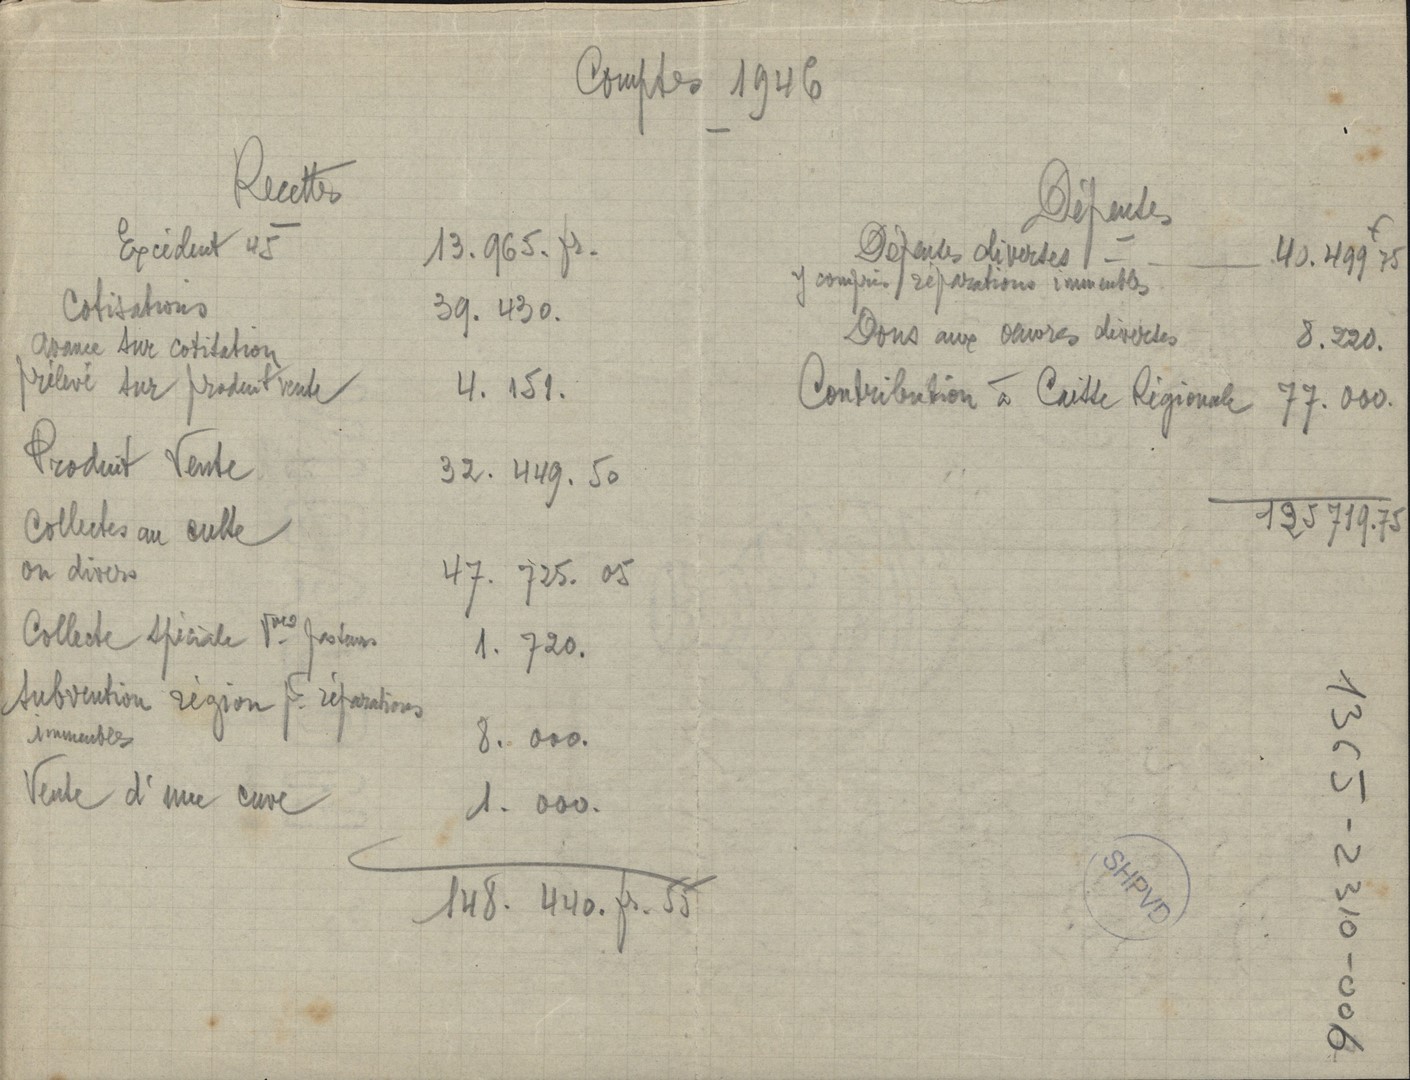 Comptes 1946
Recettes
Excédent 45 13.965. fr.
Cotisations 39. 430.
avance sur cotisation
prélevé sur produit vente 4. 151.
Produit Vente 32. 449. 50
Collectes au culte
ou divers 47. 725. 05
Collecte spéciale Pasteurs 1. 720.
Subvention région pr réparations
immeubles 8. 000.
Vente d'une cuve 1. 000.
148. 440. fr. 55
Dépenses
Dépenses diverses 40. 499f 75
y compris réparations immeubles
Dons aux œuvres diverses 8.220.
Contribution à Caisse Régionale 77. 000.
125 719.75
SHPVD
1365-2310-006